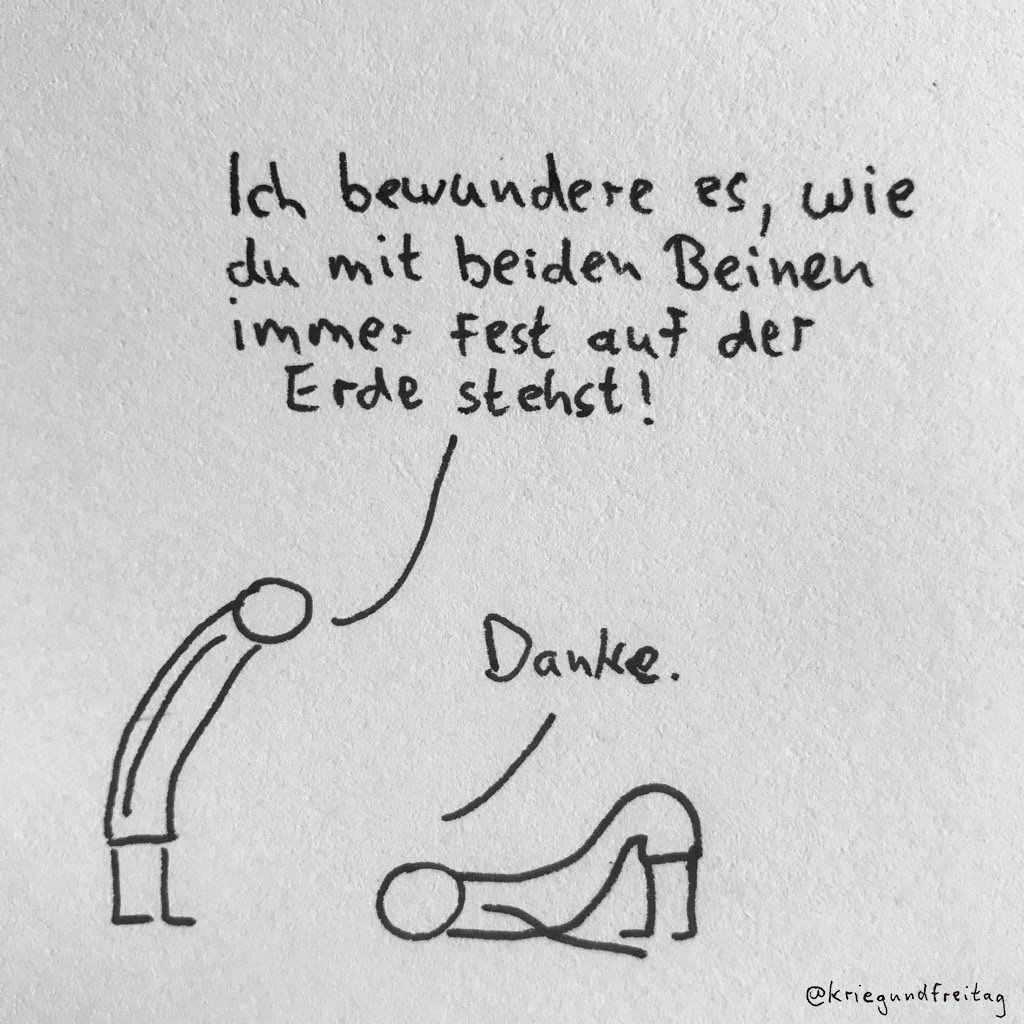 Ich bewundere es, wie
du mit beiden Beinen
immer fest auf der
Erde stehst!
Danke.
@kriegundfreitag